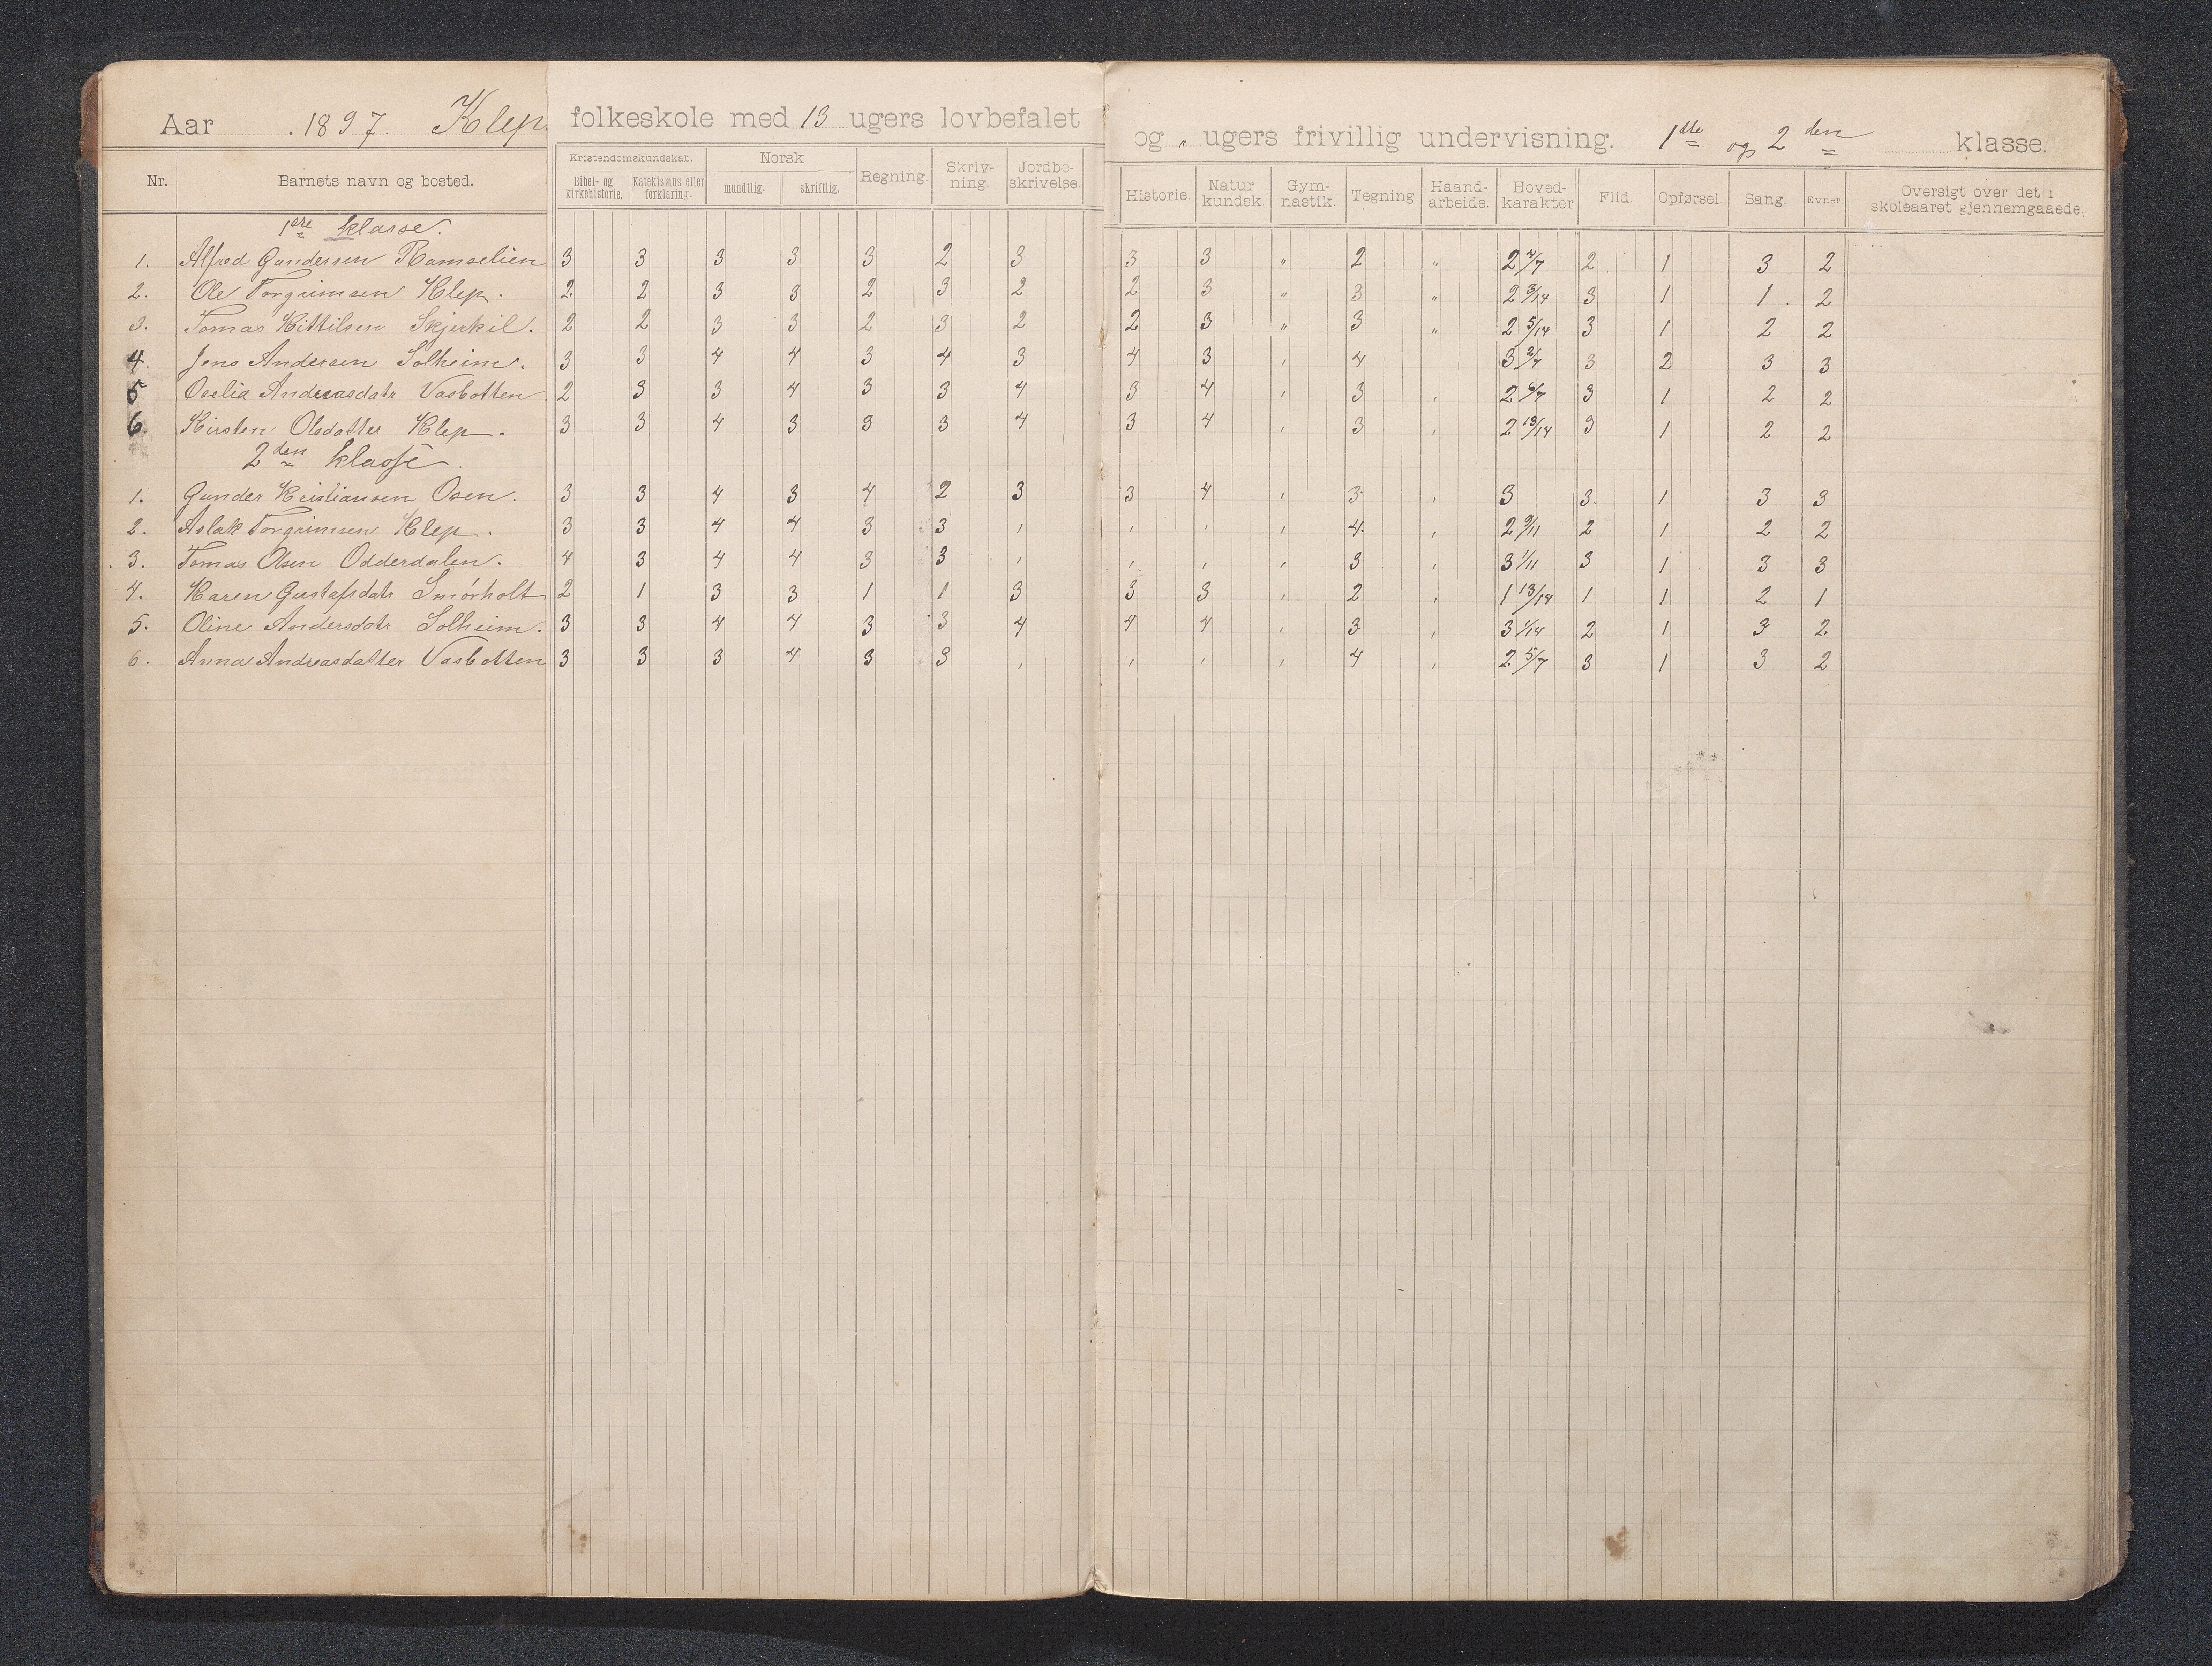 Aar 1897. Klep folkeskole med 13 ugers lovbefalet og „ ugers frivillig undervisning. 1ste og 2den klasse.
Nr. Barnets navn og bosted. Kristendomskundskab. Bibel- og kirkehistorie. Katekismus eller forklaring. Norsk mundtlig. skriftlig. Regning. Skriv-ning. Jordbe-skrivelse. Historie. Natur kundsk. Gym-nastik. Tegning Haand-arbeide. Hoved-karakter Flid. Opførsel. Sang. Evner Oversigt over det i skoleaaret gjennemgaaede.
1ste klasse.
1. Alfred Gundersen Ramselien 3 3 3 3 3 2 3 3 3 „ 2 „ 2 4/7 2 1 3 2
2. Ole Torgrimsen Klep. 2 2 3 3 2 3 2 2 3 „ 3 „ 2 3/14 3 1 1. 2
3. Tomas Kittilsen Skjerkil. 2 2 3 3 2 3 2 2 3 „ 3 „ 2 5/14 3 1 2 2
4 Jens Andersen Solheim. 3 3 4 4 3 4 3 4 3 , 4 3 2/7 3 2 3 3
5 Oselia Andreasdatr Vasbotten. 2 3 3 4 3 3 4 3 4 , 3 , 2 6/7 3 1 2 2
6. Kirsten Olsdatter Klep. 3 3 4 3 3 3 4 3 4 , 3 , 2 13/14 3 1 2 2
2den klasse.
1. Gunder Kristiansen Osen. 3 3 4 3 4 2 3 3 4 , 3 , 3 3 1 3 3
2. Aslak Torgrimsen Klep. 3 3 4 4 3 3 , , , , 4 , 2 9/11 2 1 2 2
3. Tomas Olsen Odderdalen. 4 3 4 4 3 3 , , , , 3 , 3 1/11 3 1 3 3
4. Karen Gustafsdatr Smørholt 2 1 3 3 1 1 3 3 3 , 2 , 1 13/14 1 1 2 1
5. Oline Andersdatr Solheim. 3 3 4 4 3 3 4 4 4 , 3 , 3 1/14 2 1 3 2
6. Anna Andreasdatter Vasbotten 3 3 3 4 3 3 , , , , 4 , 2 5/7 3 1 3 2